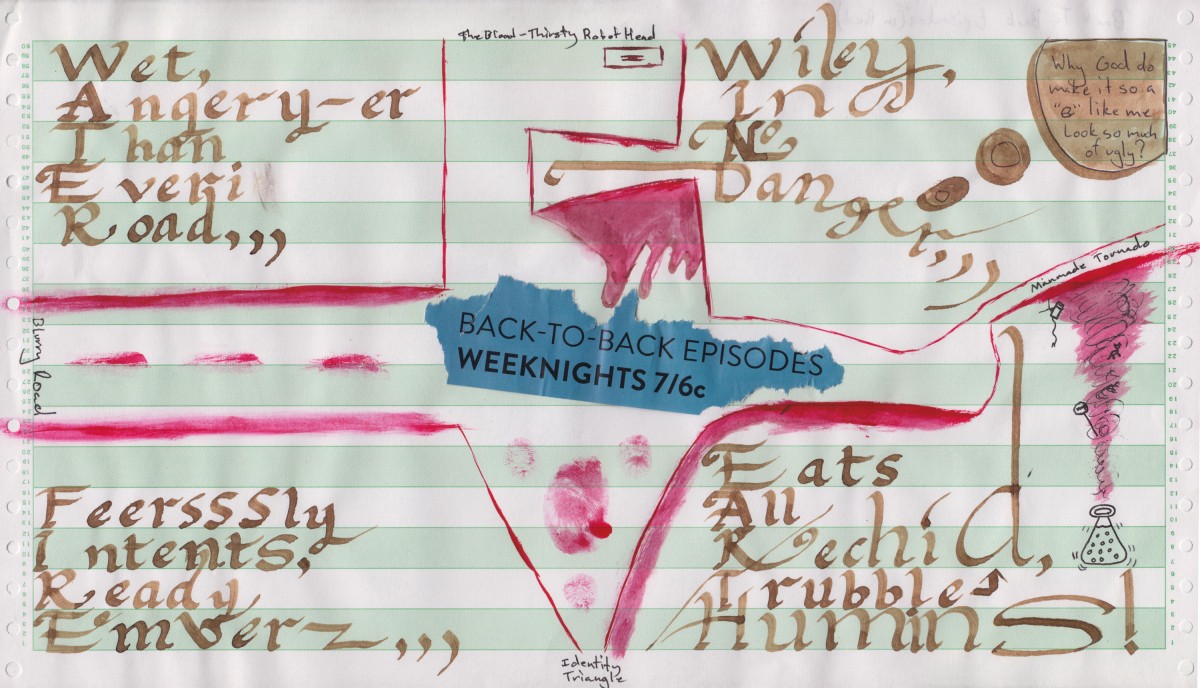 The Blood-Thirsty Robot Head
Wet,
Angery-er
Than
Everi
Road,,,
Wiley,
In
No
Danger,,,
Why God do
make it so a
"e" like me
Look so much
of ugly?
Manmade Tornado
Blurry Road
BACK-TO-BACK EPISODES
WEEKNIGHTS 7/6c
FeersSSSly
Intents,
Ready
Emverz,,,
Eats
All
Rechid,
Trubble
HuminS!
Identity
Triangle